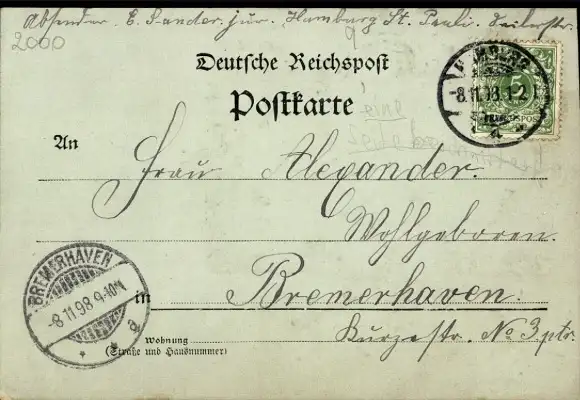 Absender. E. Sander. jur. Hamburg St. Pauli. Seilerstr. 9
2000
Deutsche Reichspost
Postkarte
HAMBURG
-8.11.98.1-2
5
REICHSPOST
An
Frau Alexander.
Wohlgeboren.
in Bremerhaven.
BREMERHAVEN
-8.11.98 9-10N.
a
Kurzestr. No 3 ptr.
Wohnung
(Straße und Hausnummer)